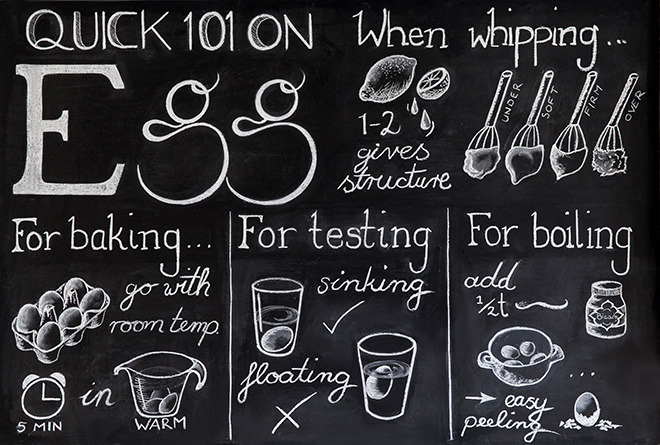 QUICK 101 ON
Egg
When whipping...
1-2
gives
structure
UNDER
SOFT
FIRM
OVER
For baking...
go with
room temp.
5 MIN
in
WARM
For testing
sinking
floating
For boiling
add
½t
Bicarb
...
→ easy
peeling